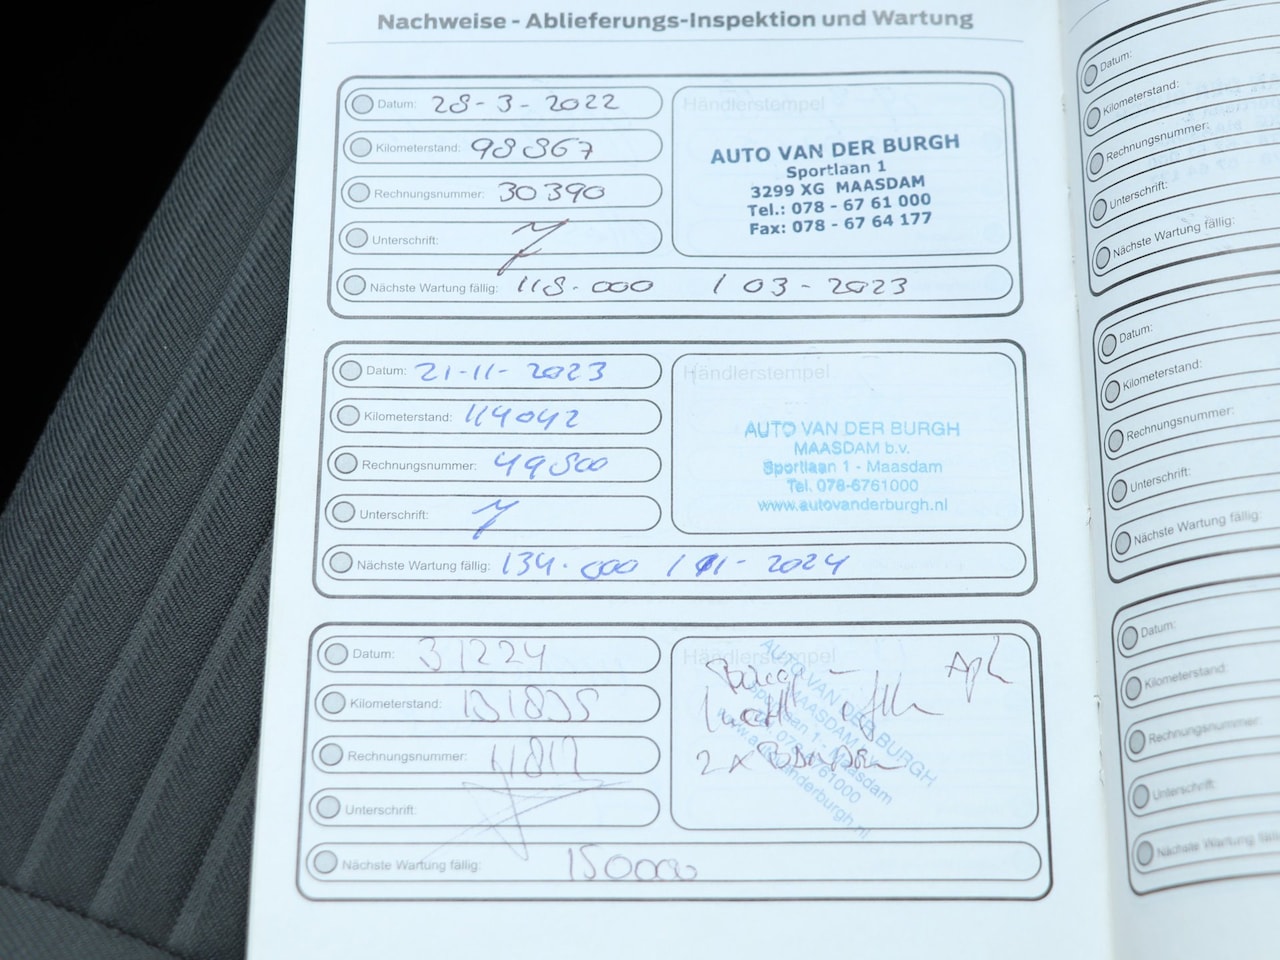 Nachweise - Ablieferungs-Inspektion und Wartung
Datum: 28-3-2022
Kilometerstand: 98867
Rechnungsnummer: 30390
Unterschrift:
Nächste Wartung fällig: 118.000 / 03-2023
Händlerstempel
AUTO VAN DER BURGH
Sportlaan 1
3299 XG MAASDAM
Tel.: 078 - 67 61 000
Fax: 078 - 67 64 177
Datum: 21-11-2023
Kilometerstand: 114042
Rechnungsnummer:
Unterschrift:
Nächste Wartung fällig: 134.000 / 11-2024
Händlerstempel
AUTO VAN DER BURGH
MAASDAM b.v.
Sportlaan 1 - Maasdam
Tel. 078-6761000
www.autovanderburgh.nl
Datum: 31224
Kilometerstand: 131835
Rechnungsnummer:
Unterschrift:
Nächste Wartung fällig: 150000
Händlerstempel
AUTO VAN DER BURGH
MAASDAM
Sportlaan 1 - Maasdam
www.autovanderburgh.nl
2 x
Datum:
Kilometerstand:
Rechnungsnummer:
Unterschrift:
Nächste Wartung fällig:
Datum:
Kilometerstand:
Rechnungsnummer:
Unterschrift:
Nächste Wartung fällig:
Datum:
Kilometerstand:
Rechnungsnummer:
Unterschrift:
Nächste Wartung fällig: